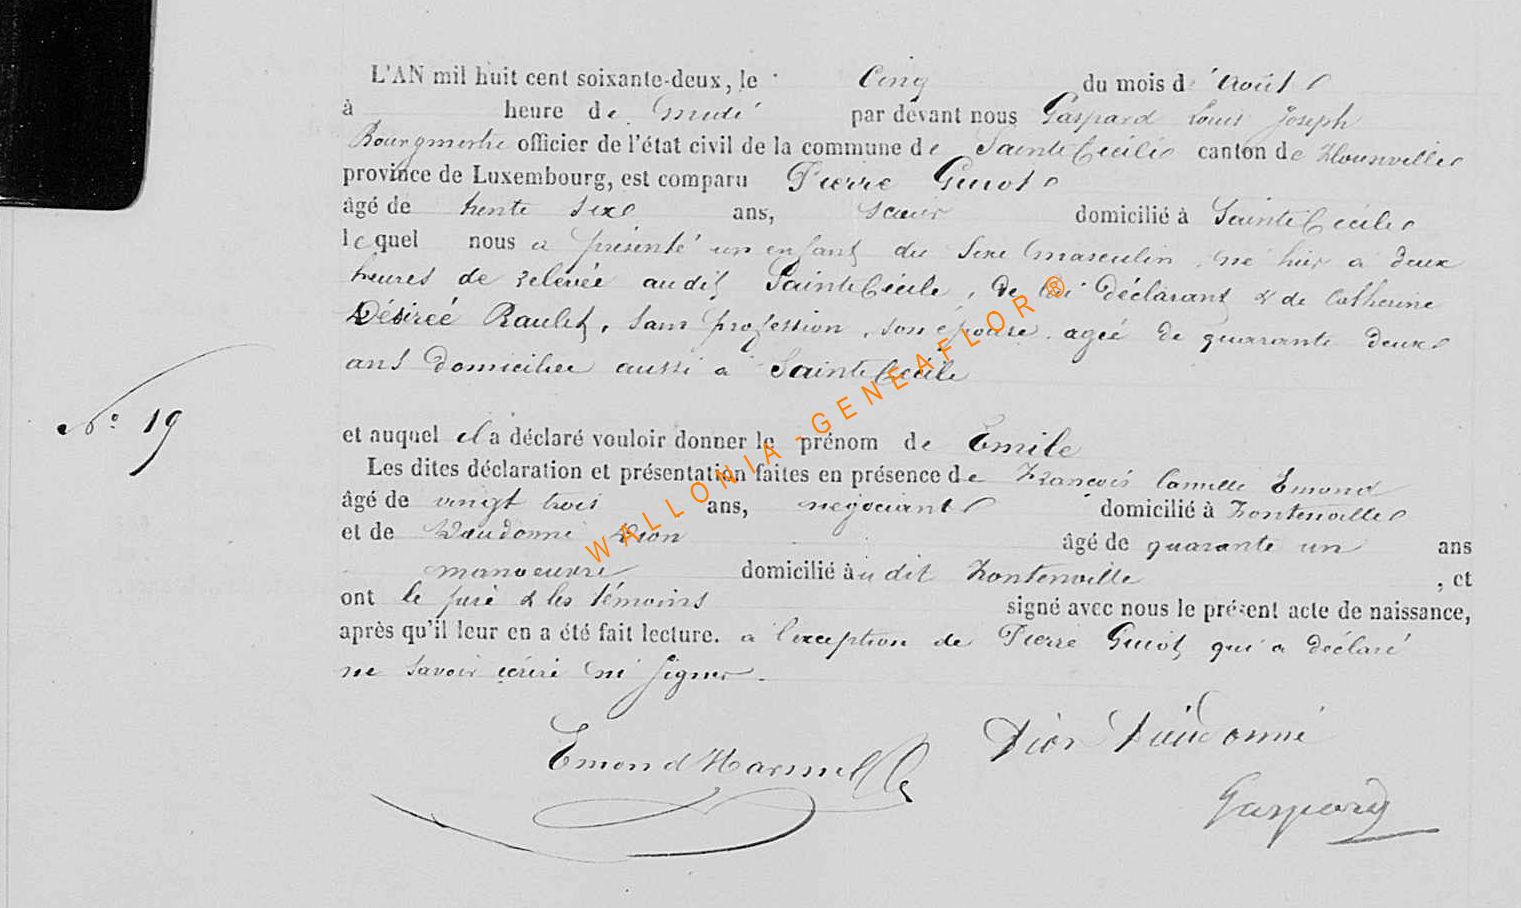 L'AN mil huit cent soixante-deux, le Cinq du mois d'Août
à heure de midi par devant nous Gaspard Louis Joseph
Bourgmestre officier de l'état civil de la commune de Sainte Cécile canton de Florenville
province de Luxembourg, est comparu Pierre Guiot
âgé de trente six ans, scieur domicilié à Sainte Cécile
lequel nous a présenté un enfant du sexe masculin, né hier à deux
heures de relevée audit Sainte Cécile, de lui déclarant & de Catherine
Désirée Raulet, sans profession, son épouse, agée de quarante deux
ans domiciliée aussi à Sainte Cécile
N° 19
et auquel il a déclaré vouloir donner le prénom de Emile
Les dites déclaration et présentation faites en présence de François Camille Emond
âgé de vingt trois ans, négociant domicilié à Fontenoille
et de Dieudonné Dion âgé de quarante un ans
manoeuvre domicilié audit Fontenoille, et
ont le père & les témoins signé avec nous le présent acte de naissance,
après qu'il leur en a été fait lecture. à l'exception de Pierre Guiot qui a déclaré
ne savoir écrire ni signer.
Emond Dion Dieudonné
Gaspard
WALLONIA - GENEAFLOR ®